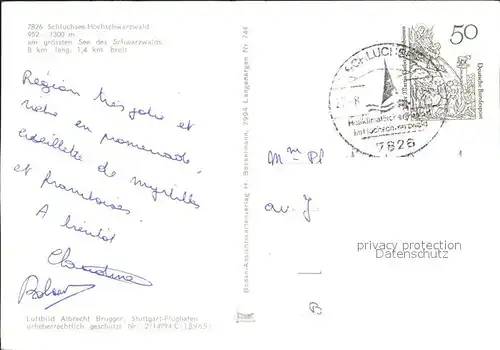 7826 Schluchsee-Hochschwarzwald
952 - 1300 m
am grössten See des Schwarzwalds
8 km lang, 1,4 km breit
Région très jolie et
riche en promenade,
cueillette de myrtilles
et framboises
A bientôt
Claudine
Luftbild Albrecht Brugger, Stuttgart-Flughafen
urheberrechtlich geschützt Nr. 2/14994 C
Boden-Ansichtskartenverlag H. Bötselmann, 7994 Langenargen Nr 744
SCHLUCHSEE
Heilklimatischer
im Hochschwarzwald
7826
50
Deutsche Bundespost
Mme Pf
av. J
B
privacy protection
Datenschutz